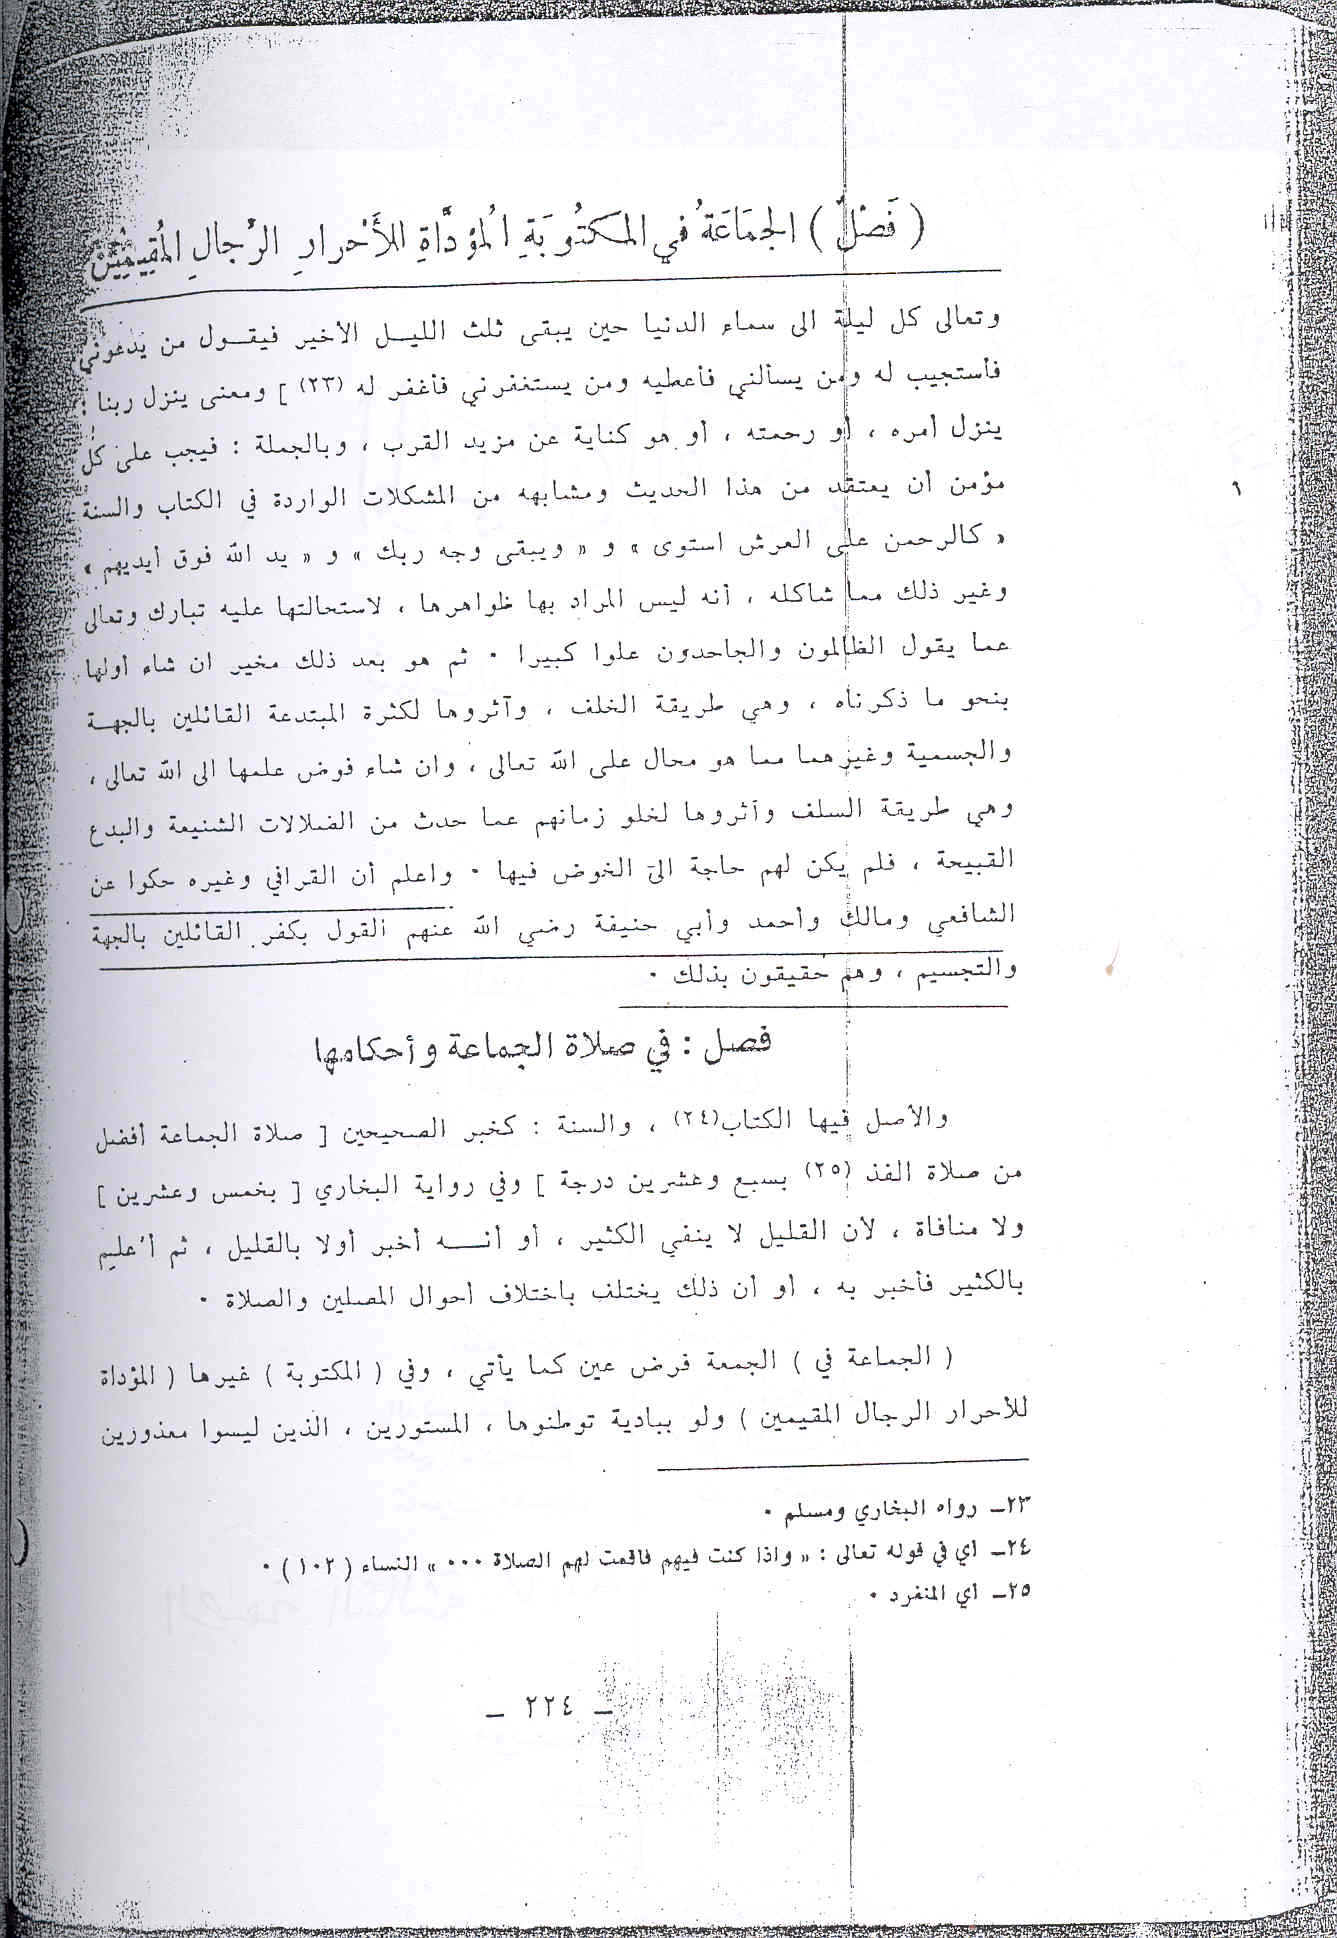 ( فَصْلٌ ) الجَمَاعَةُ في المكتُوبَةِ المُؤدَّاةِ للأَحْرارِ الرِّجالِ المُقِيمِيْنَ
وتعالى كل ليلة الى سماء الدنيا حين يبقى ثلث الليــل الأخير فيقــول من يدعوني
فأستجيب له ومن يسألني فأعطيه ومن يستغفرني فأغفر له (٢٣) ] ومعنى ينزل ربنا :
ينزل أمره ، أو رحمته ، أو هو كناية عن مزيد القرب ، وبالجملة : فيجب على كل
مؤمن أن يعتقد من هذا الحديث ومشابهه من المشكلات الواردة في الكتاب والسنة
« كالرحمن على العرش استوى » و « ويبقى وجه ربك » و « يد الله فوق أيديهم »
وغير ذلك مما شاكله ، أنه ليس المراد بها ظواهرها ، لاستحالتها عليه تبارك وتعالى
عما يقول الظالمون والجاحدون علوا كبيرا ٠ ثم هو بعد ذلك مخير ان شاء أولها
بنحو ما ذكرناه ، وهي طريقة الخلف ، وآثروها لكثرة المبتدعة القائلين بالجهــة
والجسمية وغيرهما مما هو محال على الله تعالى ، وان شاء فوض علمها الى الله تعالى ،
وهي طريقة السلف وآثروها لخلو زمانهم عما حدث من الضلالات الشنيعة والبدع
القبيحة ، فلم يكن لهم حاجة الى الخوض فيها ٠ واعلم أن القرافي وغيره حكوا عن
الشافعي ومالك وأحمد وأبي حنيفة رضي الله عنهم القول بكفر القائلين بالجهة
والتجسيم ، وهم حقيقون بذلك ٠
فصل : في صلاة الجماعة وأحكامها
والأصل فيها الكتاب(٢٤) ، والسنة : كخبر الصحيحين [ صلاة الجماعة أفضل
من صلاة الفذ (٢٥) بسبع وعشرين درجة ] وفي رواية البخاري [ بخمس وعشرين ]
ولا منافاة ، لأن القليل لا ينفي الكثير ، أو أنـــه أخبر أولا بالقليل ، ثم أُعليم
بالكثير فأخبر به ، أو أن ذلك يختلف باختلاف أحوال المصلين والصلاة ٠
( الجماعة في ) الجمعة فرض عين كما يأتي ، وفي ( المكتوبة ) غيرها ( المؤداة
للأحرار الرجال المقيمين ) ولو ببادية توطنوها ، المستورين ، الذين ليسوا معذورين
٢٣ــ رواه البخاري ومسلم ٠
٢٤ــ أي في قوله تعالى : « واذا كنت فيهم فاقمت لهم الصلاة ٠٠٠ » النساء ( ١٠٢ ) ٠
٢٥ــ أي المنفرد ٠
ــ ٢٢٤ ــ